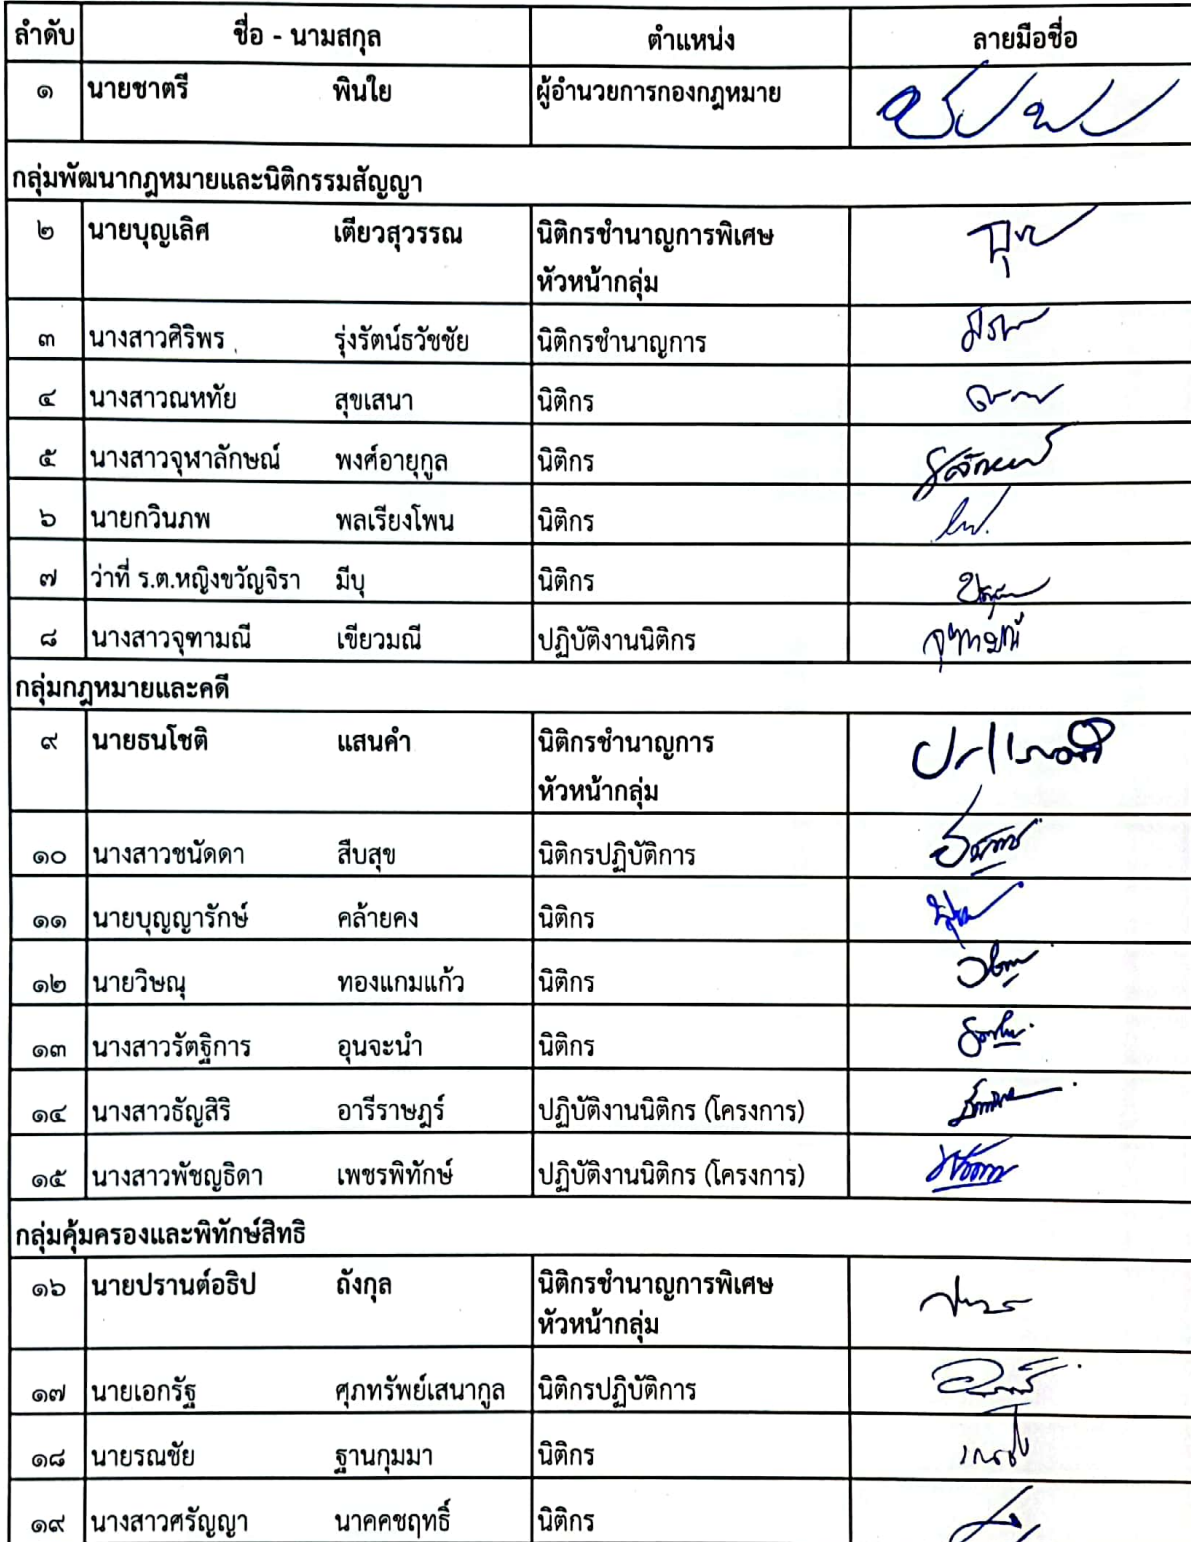 ลำดับ ชื่อ - นามสกุล ตำแหน่ง ลายมือชื่อ
๑ นายชาตรี พินใย ผู้อำนวยการกองกฎหมาย
กลุ่มพัฒนากฎหมายและนิติกรรมสัญญา
๒ นายบุญเลิศ เตียวสุวรรณ นิติกรชำนาญการพิเศษ
หัวหน้ากลุ่ม
๓ นางสาวศิริพร รุ่งรัตน์ธวัชชัย นิติกรชำนาญการ
๔ นางสาวณหทัย สุขเสนา นิติกร
๕ นางสาวจุฬาลักษณ์ พงศ์อายุกูล นิติกร
๖ นายกวินภพ พลเรียงโพน นิติกร
๗ ว่าที่ ร.ต.หญิงขวัญจิรา มีบุ นิติกร
๘ นางสาวจุฑามณี เขียวมณี ปฏิบัติงานนิติกร จุฑามณี
กลุ่มกฎหมายและคดี
๙ นายธนโชติ แสนคำ นิติกรชำนาญการ
หัวหน้ากลุ่ม
๑๐ นางสาวชนัดดา สืบสุข นิติกรปฏิบัติการ
๑๑ นายบุญญารักษ์ คล้ายคง นิติกร
๑๒ นายวิษณุ ทองแกมแก้ว นิติกร
๑๓ นางสาวรัตฐิการ อุนจะนำ นิติกร
๑๔ นางสาวธัญสิริ อารีราษฎร์ ปฏิบัติงานนิติกร (โครงการ)
๑๕ นางสาวพัชญธิดา เพชรพิทักษ์ ปฏิบัติงานนิติกร (โครงการ)
กลุ่มคุ้มครองและพิทักษ์สิทธิ
๑๖ นายปรานต์อธิป ถังกุล นิติกรชำนาญการพิเศษ
หัวหน้ากลุ่ม
๑๗ นายเอกรัฐ ศุภทรัพย์เสนากูล นิติกรปฏิบัติการ
๑๘ นายรณชัย ฐานกุมมา นิติกร
๑๙ นางสาวศรัญญา นาคคชฤทธิ์ นิติกร